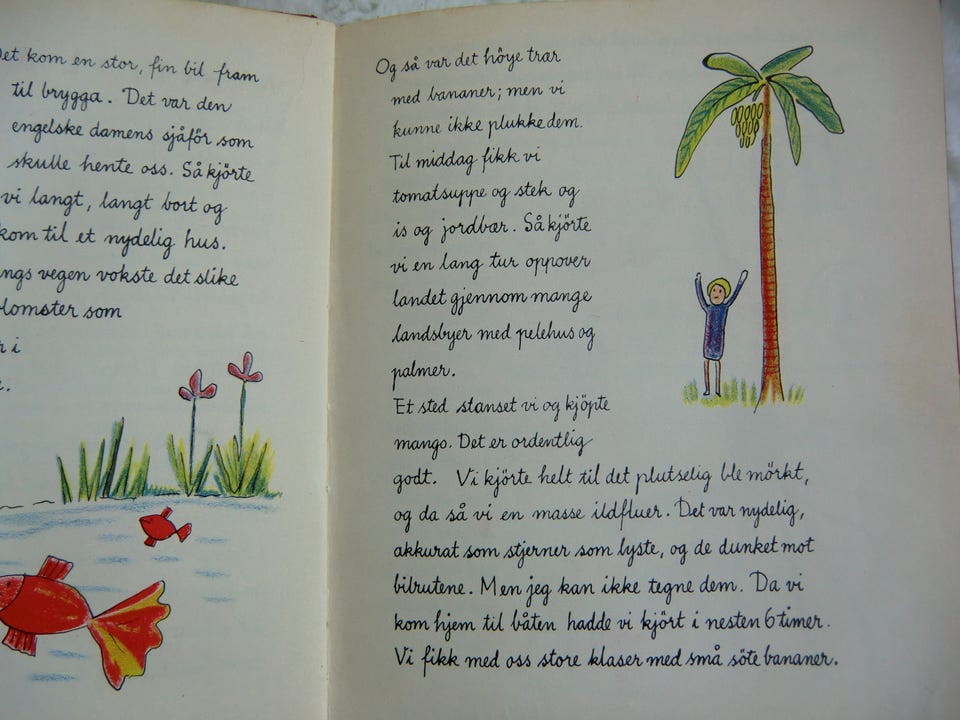 Det kom en stor, fin bil fram
til brygga. Det var den
engelske damens sjåför som
skulle hente oss. Så kjörte
vi langt, langt bort og
kom til et nydelig hus.
vegen vokste det slike
som
i
Og så var det höye trær
med bananer; men vi
kunne ikke plukke dem.
Til middag fikk vi
tomatsuppe og stek og
is og jordbær. Så kjörte
vi en lang tur oppover
landet gjennom mange
landsbyer med pelehus og
palmer.
Et sted stanset vi og kjöpte
mango. Det er ordentlig
godt. Vi kjörte helt til det plutselig ble mörkt,
og da så vi en masse ildfluer. Det var nydelig,
akkurat som stjerner som lyste, og de dunket mot
bilrutene. Men jeg kan ikke tegne dem. Da vi
kom hjem til båten hadde vi kjört i nesten 6 timer.
Vi fikk med oss store klaser med små söte bananer.